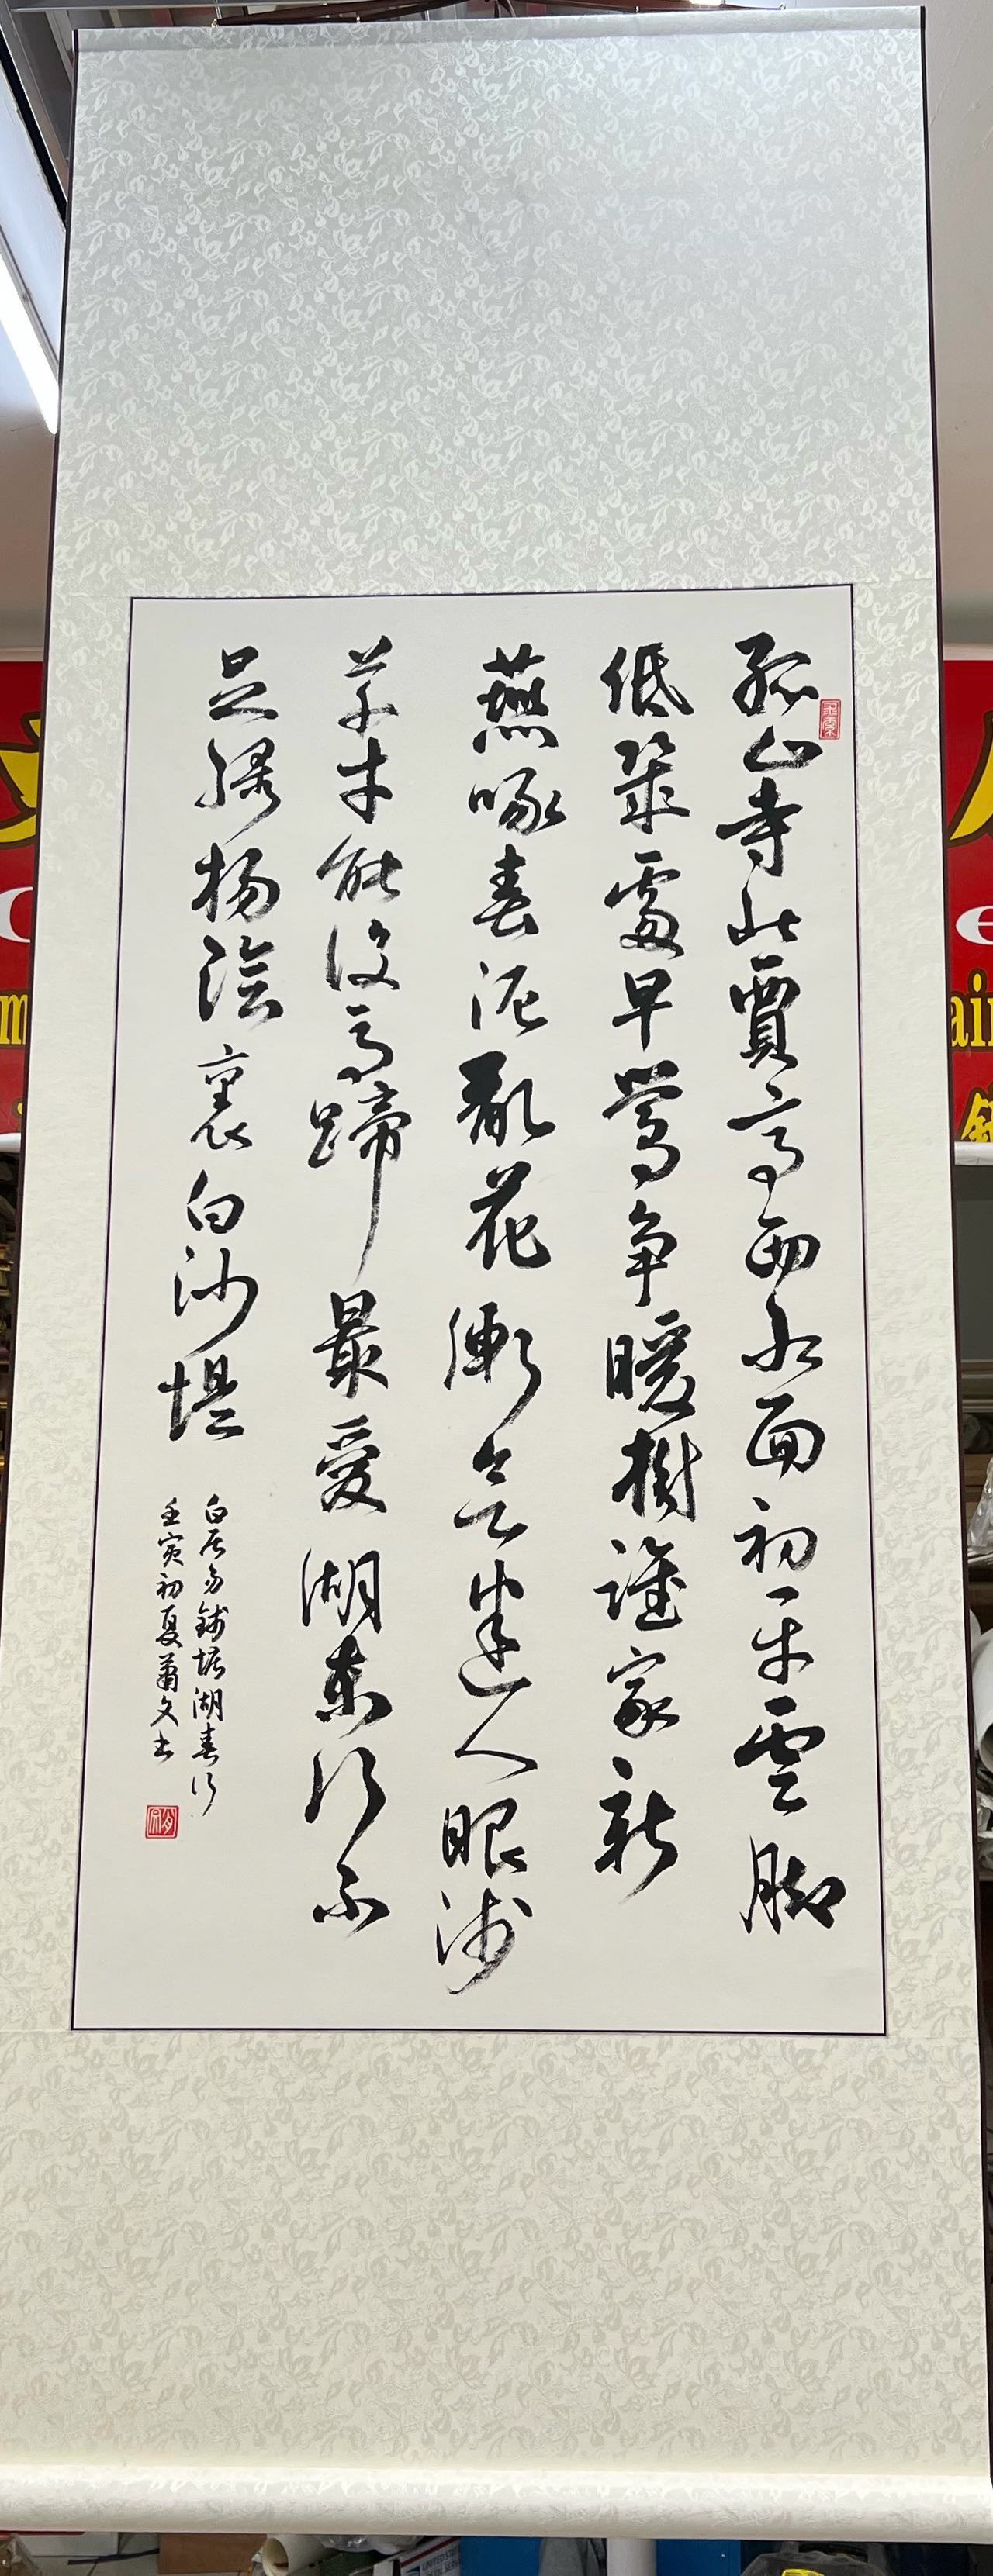 孤山寺北賈亭西水面初平雲脚
低幾處早鶯争暖樹誰家新
燕啄春泥亂花漸欲迷人眼淺
草才能沒馬蹄最愛湖東行不
足綠楊陰裏白沙堤
白居易錢塘湖春行
壬寅初夏蕭文书